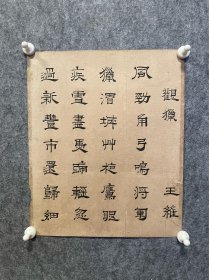 觀獵 王維
風勁角弓鳴將軍
獵渭城艸枯鷹眼
疾雪盡馬蹄輕忽
過新豐市還歸細